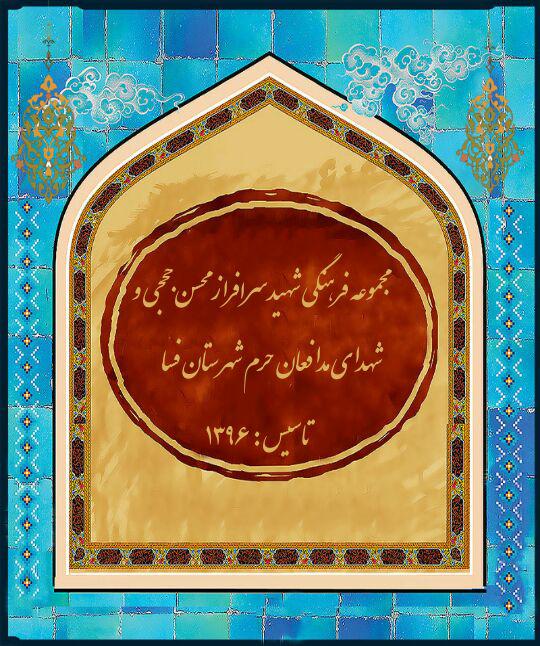 مجموعه فرهنگی شهید سرافراز محسن حججی و
شهدای مدافعان حرم شهرستان فسا
تاسیس : ۱۳۹۶